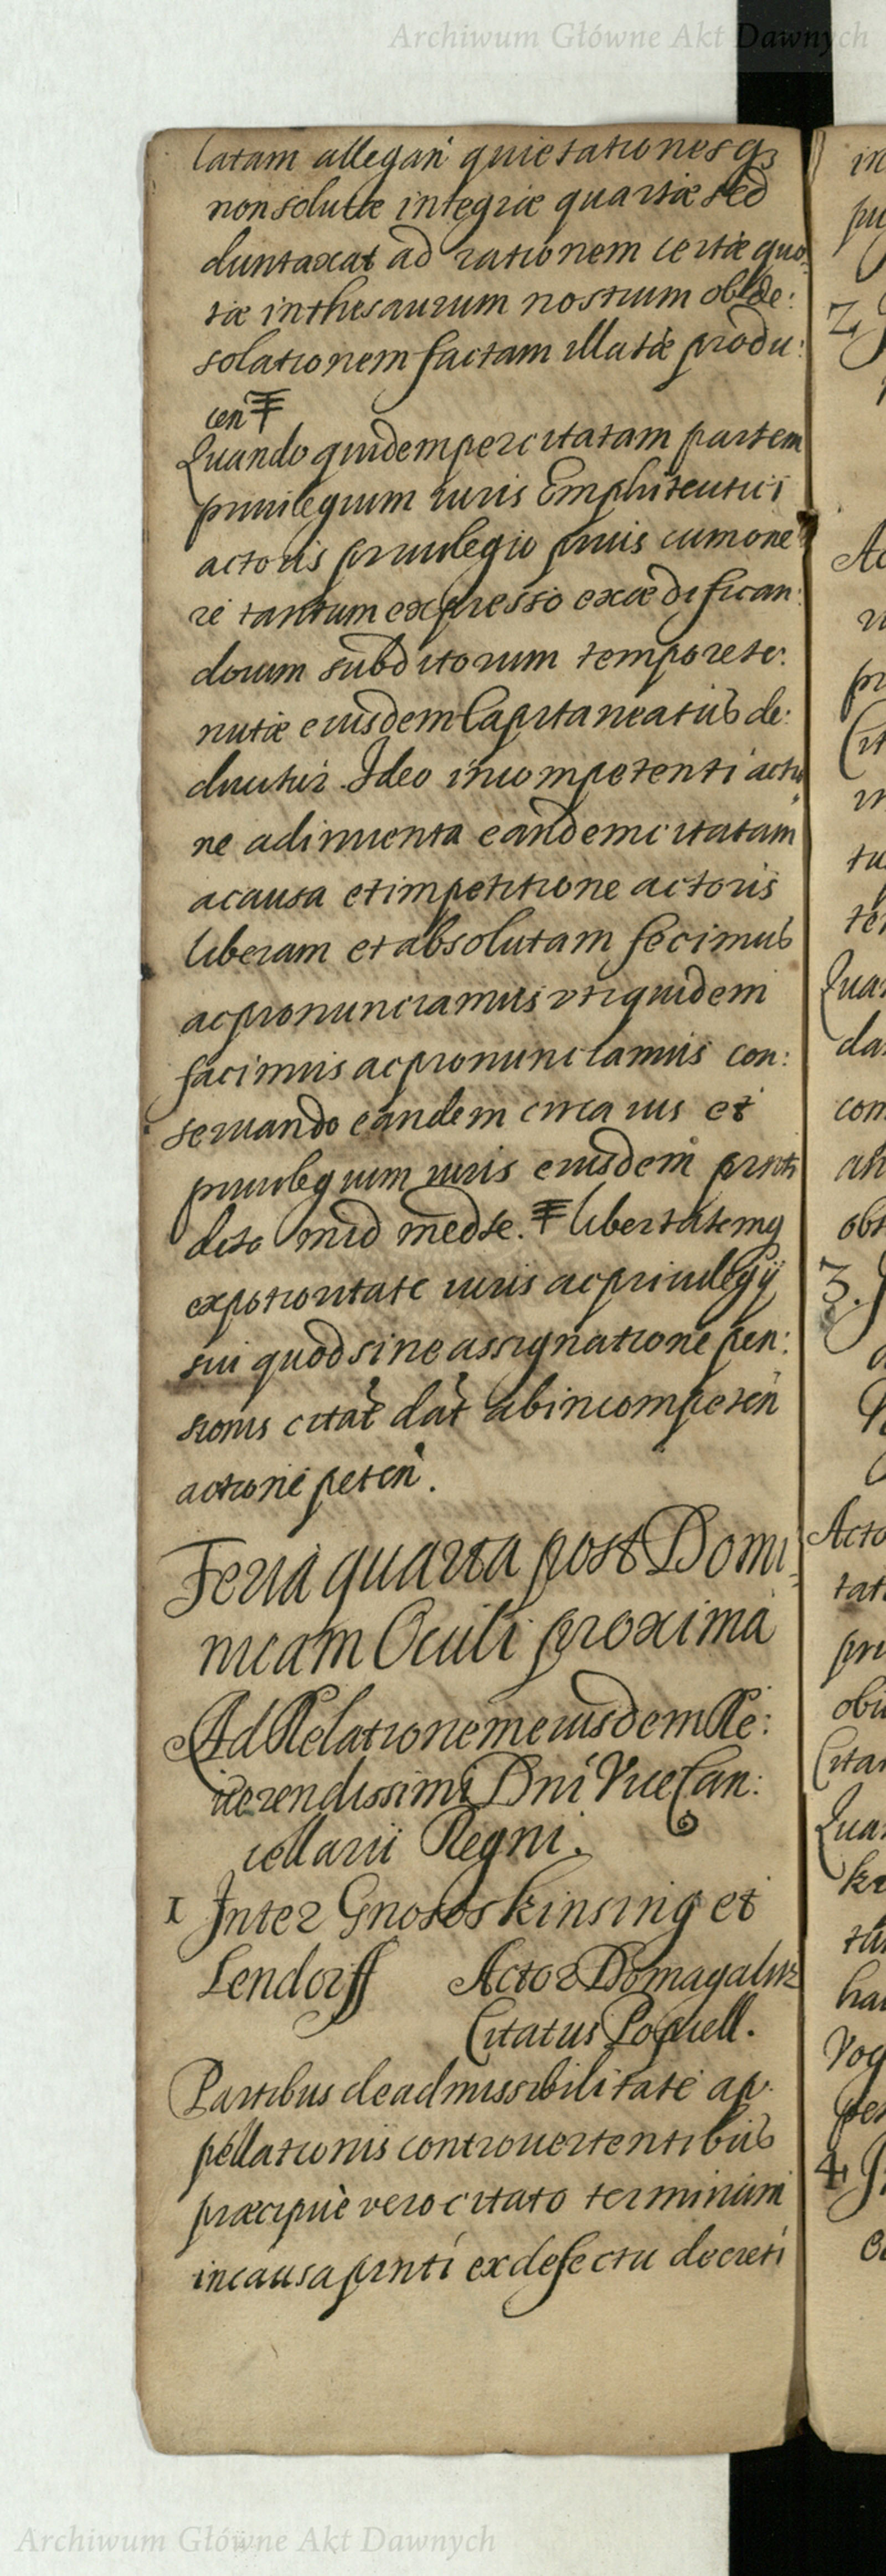 Archiwum Główne Akt Dawnych
latam allegan quietationesq3
non solutæ integræ quartæ sed
duntaxat ad rationem certæ quo:
tæ in thesaurum nostrum ob de:
solationem factam illatæ produ:
cen
Quando quidem per citatam partem
privilegium iuris Emphiteutici
actoris privilegio prius cum one
re tantum expresso exædifican:
dorum subditorum tempore te:
nutæ eiusdem Capitaneatus de:
ducitur. Ideo incompetenti actio
ne adinventa eandem citatam
a causa et impetitione actoris
liberam et absolutam fecimus
ac pronunciamus utiquidem
facimus ac pronunciamus con:
servando eandem circa ius et
privilegium iuris eiusdem prnti
dcto mtd medte. libertatemq
expotioritate iuris ac privilegÿ
sui quod sine assignatione pen:
sionis citat dat ab incompeten
actione peten.
Feria quarta post Domi
nicam Oculi proxima
Ad Relationem eiusdem Re:
verendissimi Dni Vice Can:
cellarii Regni.
1 Inter Gnosos Kinsing et
Lendorff Actor Domagalicz
Citatus Popuell.
Partibus de admissibilitate ap
pellationis controvertentibus
præcipuè vero citato terminum
in causa prnti ex defectu decreti
in
pu
2
Ac
pr
Cit
tu
ter
Quan
da
com
obt
3.
Acto
tat
pri
obu
Citat
Quan
tu
hab
Vog
per
4
Archiwum Główne Akt Dawnych